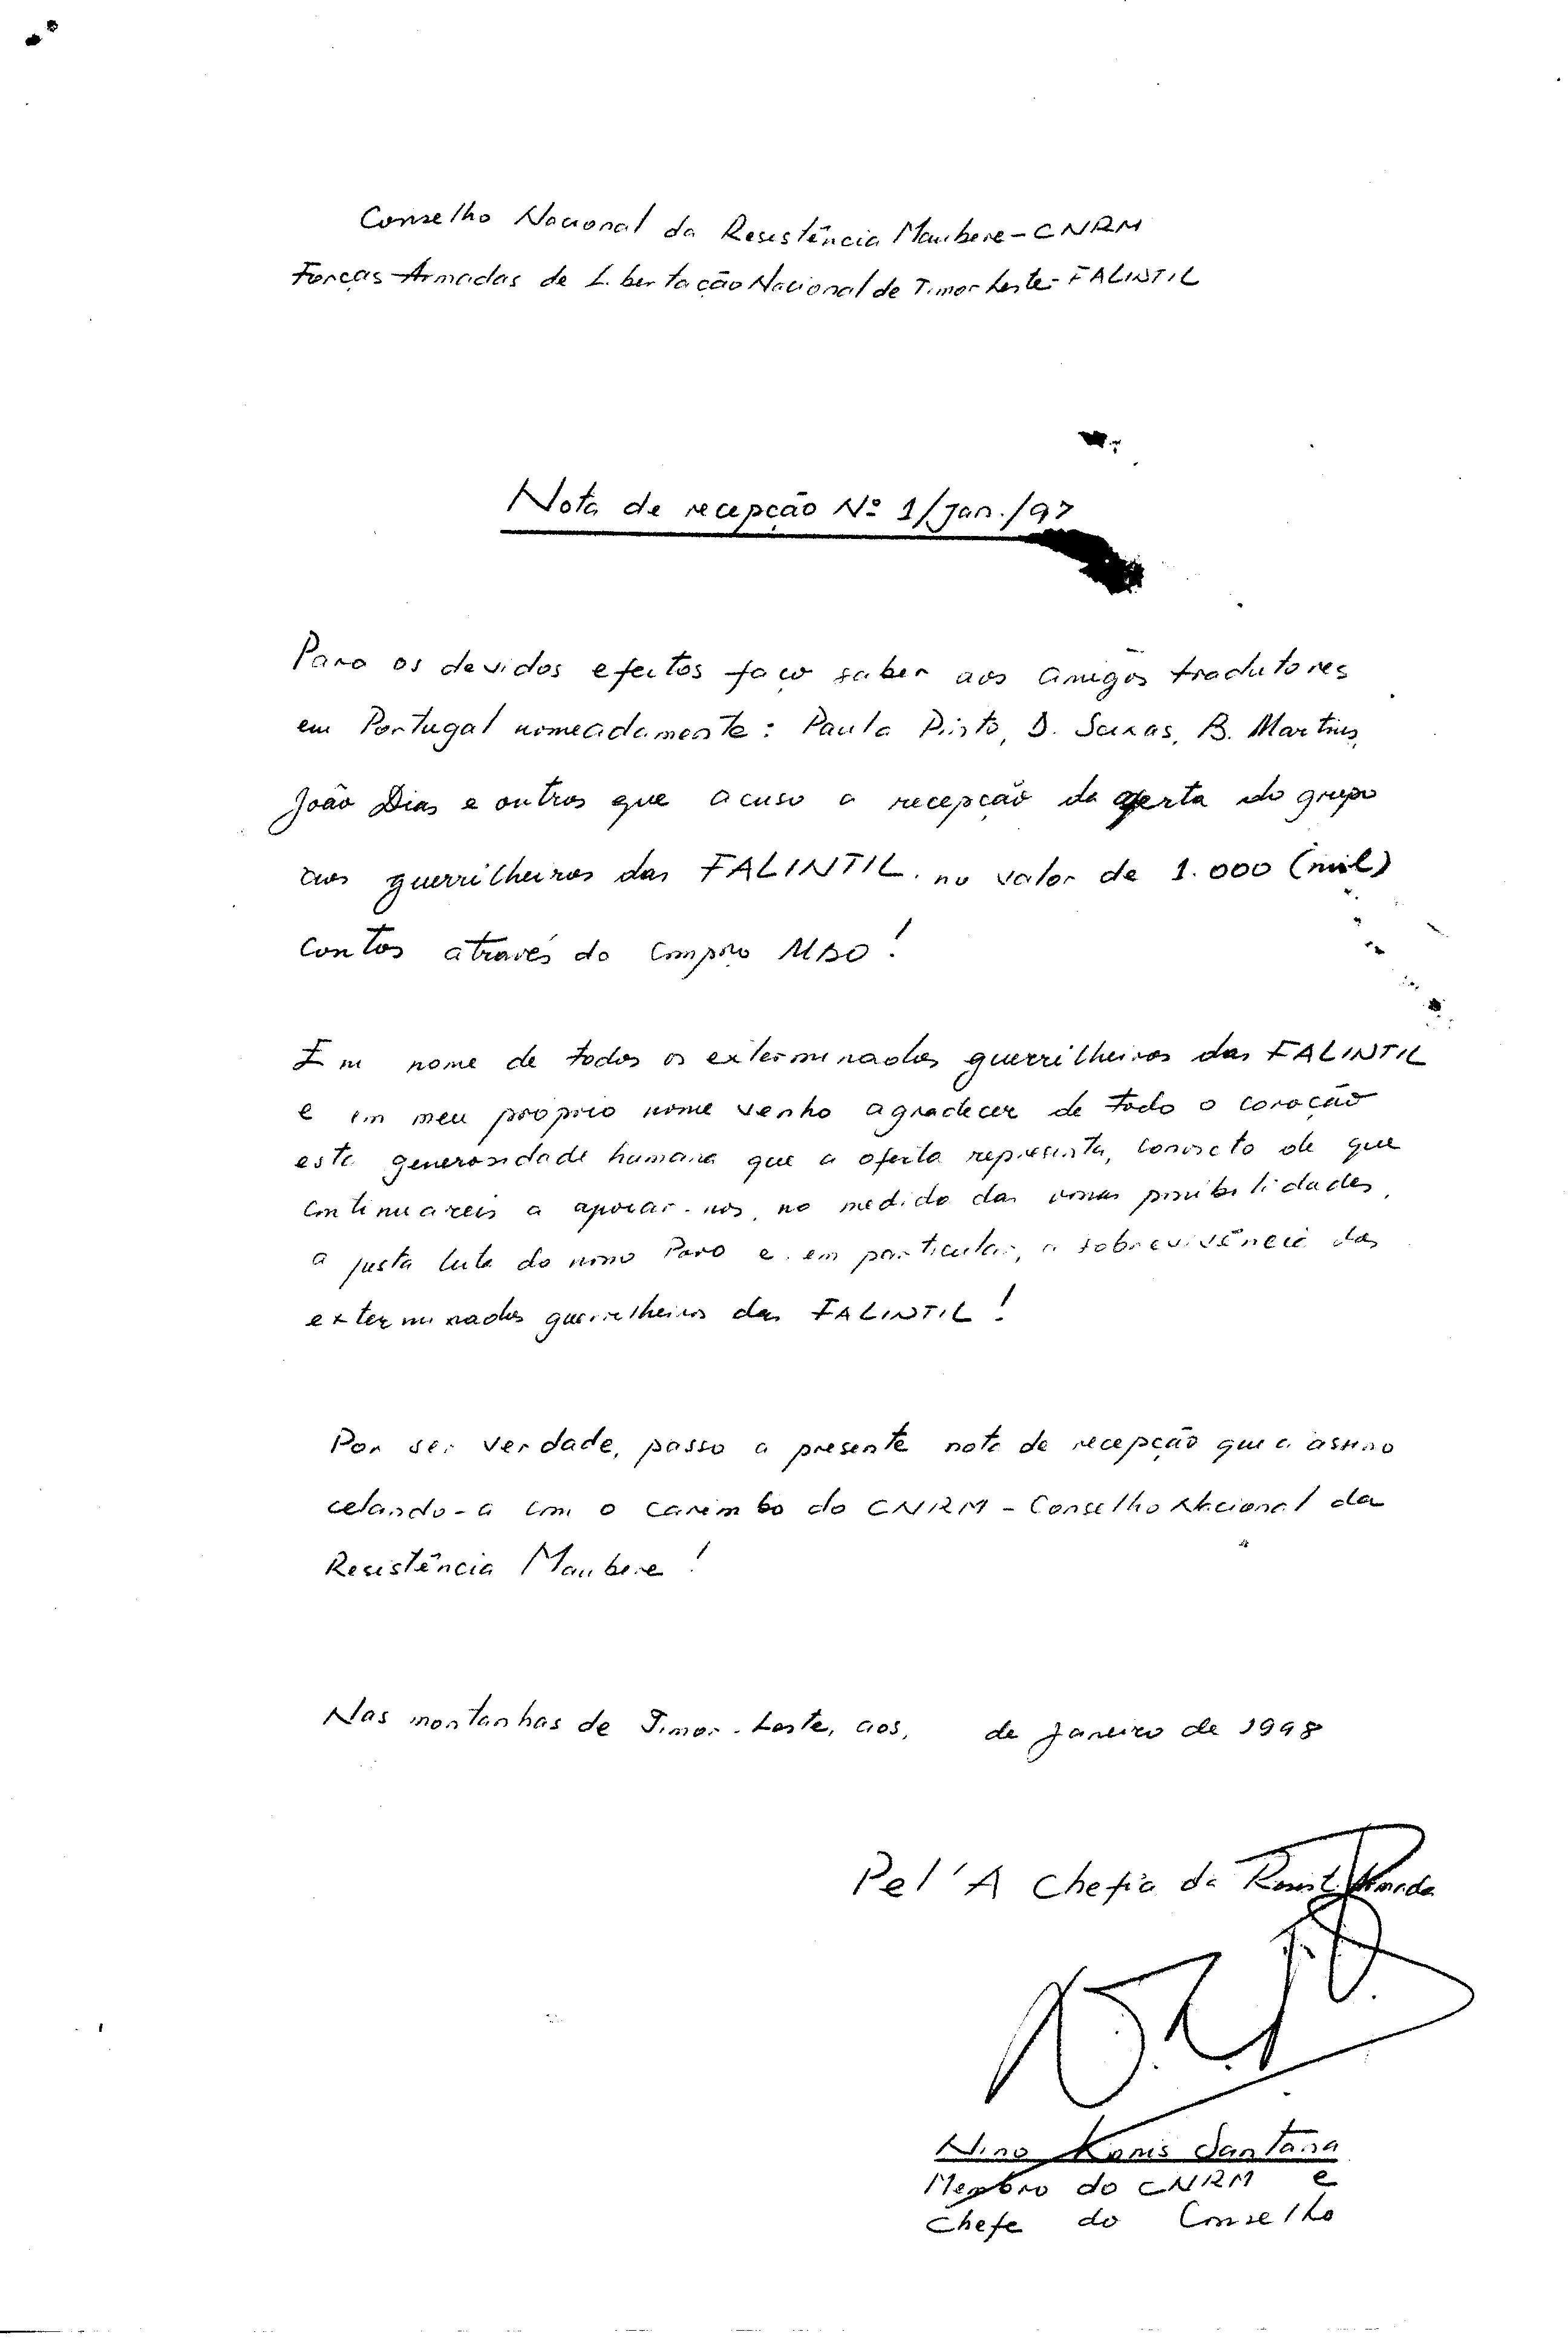 Conselho Nacional da Resistência Maubere - CNRM
Forças Armadas de Libertação Nacional de Timor Leste - FALINTIL
Nota de recepção Nº 1/Jan./97
Para os devidos efeitos faço saber aos amigos tradutores
em Portugal nomeadamente: Paula Pinto, D. Seixas, B. Martins,
João Dias e outros que acuso a recepção da oferta do grupo
aos guerrilheiros das FALINTIL no valor de 1.000 (mil)
contos através do
Em nome de todos os exterminados guerrilheiros das FALINTIL
e em meu próprio nome venho agradecer de todo o coração
esta generosidade humana que a oferta representa, convicto de que
continuareis a apoiar-nos, na medida das vossas possibilidades,
a justa luta do nosso Povo e, em particular, a sobrevivência dos
exterminados guerrilheiros das FALINTIL!
Por ser verdade, passo a presente nota de recepção que a assino
celando-a com o carimbo do CNRM - Conselho Nacional da
Resistência Maubere!
Nas montanhas de Timor-Leste, aos, de Janeiro de 1998
Pel'A Chefia da Resist. Armada
Nino Konis Santana
Membro do CNRM e
Chefe do Conselho